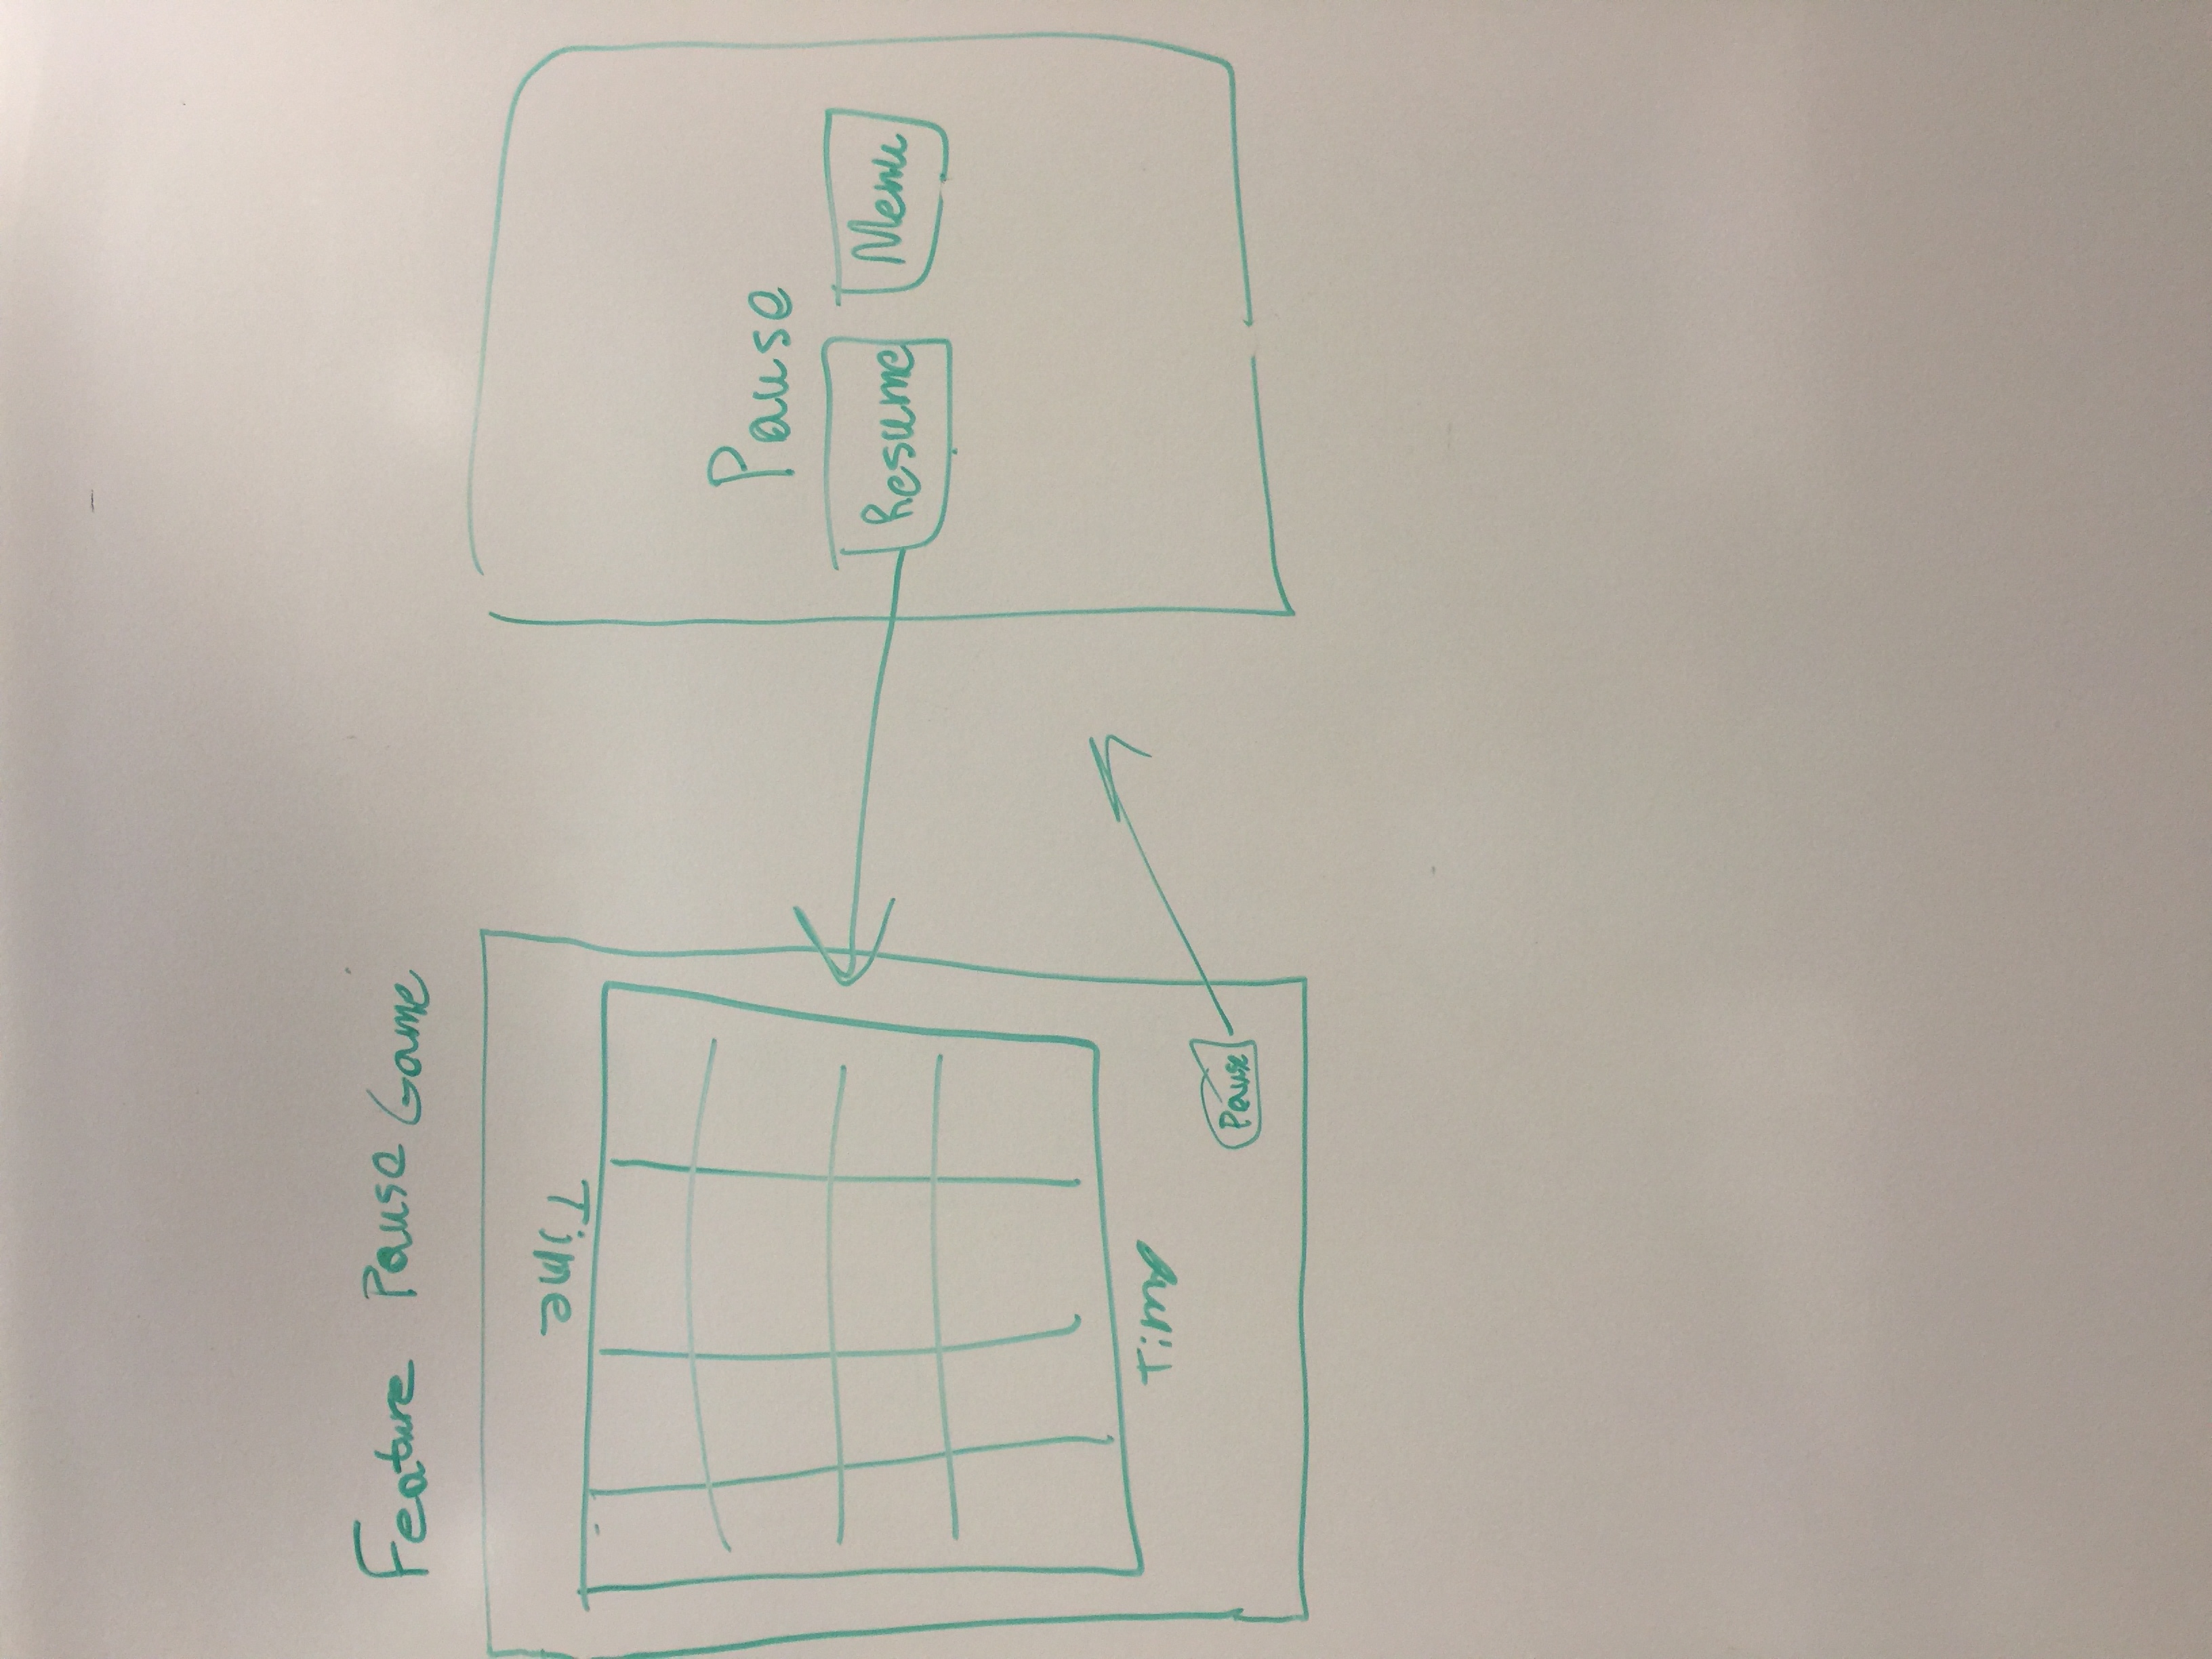 Feature Pause Game
Time
Time
Pause
Pause
Resume
Menu